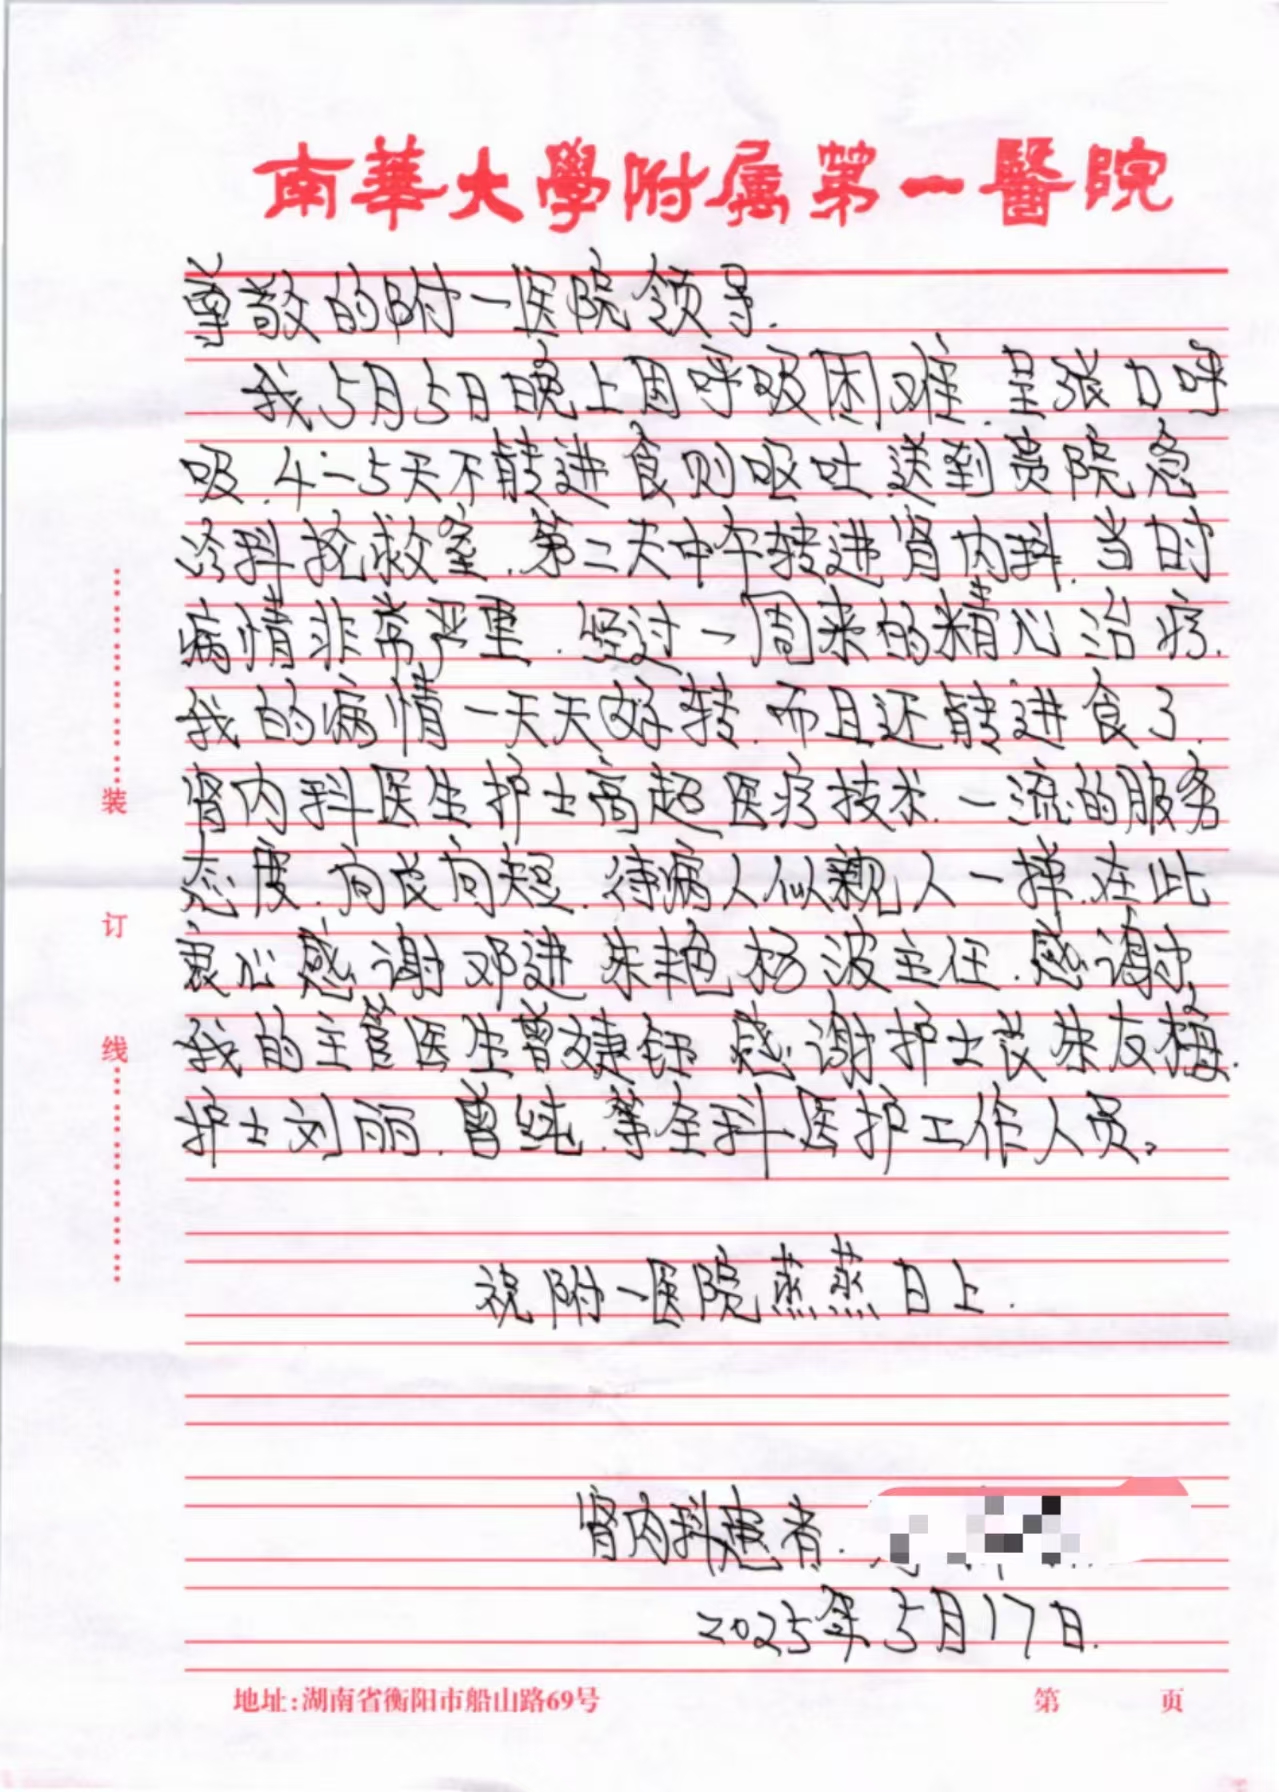 南華大學附属第一醫院
尊敬的附一医院领导.
我5月5日晚上因呼吸困难.呈张口呼
吸.4-5天不能进食则呕吐送到贵院急
诊科抢救室.第二天中午转进肾内科.当时
病情非常严重.经过一周来的精心治疗.
我的病情一天天好转.而且还能进食了.
肾内科医生护士高超医疗技术.一流的服务
态度.问长问短.待病人似亲人一样.在此
衷心感谢邓进 朱艳 杨波主任.感谢
我的主管医生曾婕钰 感谢护士长朱友梅.
护士刘丽.曾纯.等全科医护工作人员。
祝附一医院蒸蒸日上.
肾内科患者.
2025年5月17日.
装
订
线
地址:湖南省衡阳市船山路69号
第 页